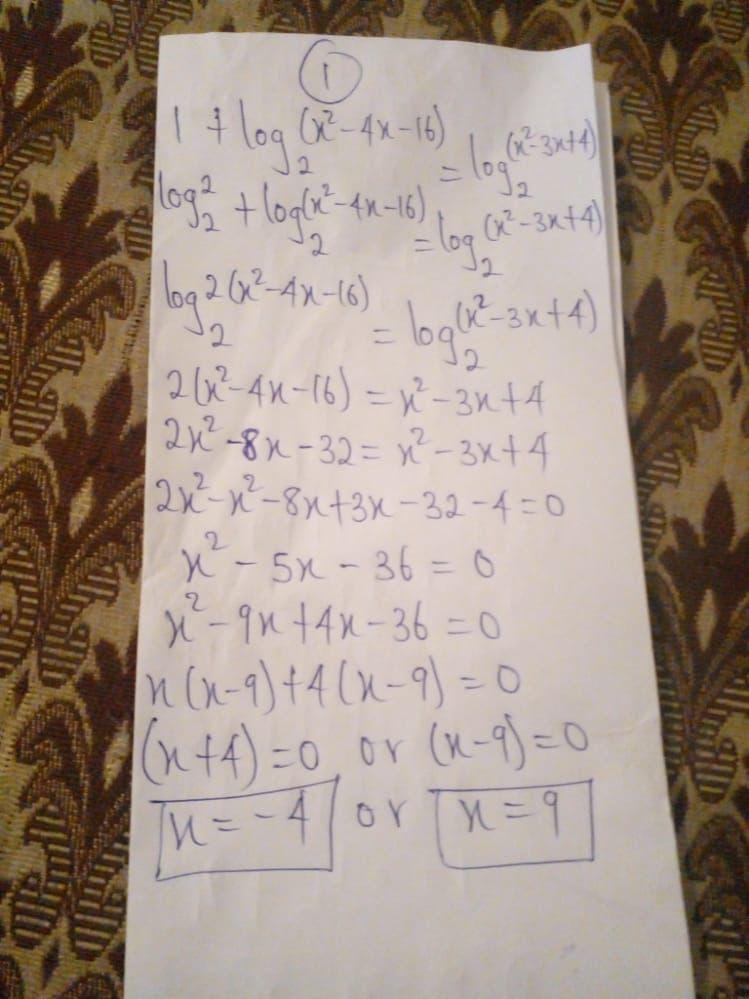 1
1 + log₂(x²-4x-16) = log₂(x²-3x+4)
log₂2 + log₂(x²-4x-16) = log₂(x²-3x+4)
log₂2(x²-4x-16) = log₂(x²-3x+4)
2(x²-4x-16) = x²-3x+4
2x²-8x-32 = x²-3x+4
2x²-x²-8x+3x-32-4=0
x²-5x-36=0
x²-9x+4x-36=0
x(x-9)+4(x-9)=0
(x+4)=0 or (x-9)=0
x=-4 or x=9